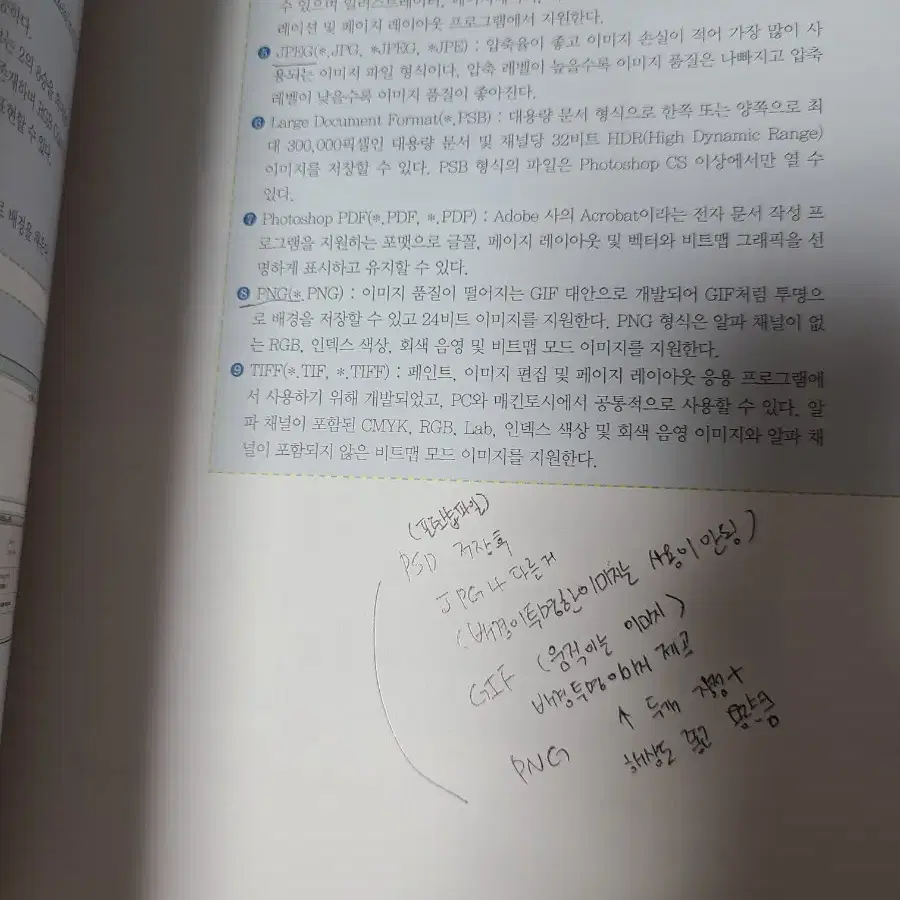 수 있으며 일러스트레이터, 페이지메이커
레이션 및 페이지 레이아웃 프로그램에서 지원한다.
❺ JPEG(*.JPG, *JPEG, *JPE) : 압축율이 좋고 이미지 손실이 적어 가장 많이 사
용되는 이미지 파일 형식이다. 압축 레벨이 높을수록 이미지 품질은 나빠지고 압축
레벨이 낮을수록 이미지 품질이 좋아진다.
❻ Large Document Format(*.PSB) : 대용량 문서 형식으로 한쪽 또는 양쪽으로 최
대 300,000픽셀인 대용량 문서 및 채널당 32비트 HDR(High Dynamic Range)
이미지를 저장할 수 있다. PSB 형식의 파일은 Photoshop CS 이상에서만 열 수
있다.
❼ Photoshop PDF(*.PDF, *.PDP) : Adobe 사의 Acrobat이라는 전자 문서 작성 프
로그램을 지원하는 포맷으로 글꼴, 페이지 레이아웃 및 벡터와 비트맵 그래픽을 선
명하게 표시하고 유지할 수 있다.
❽ PNG(*.PNG) : 이미지 품질이 떨어지는 GIF 대안으로 개발되어 GIF처럼 투명으
로 배경을 저장할 수 있고 24비트 이미지를 지원한다. PNG 형식은 알파 채널이 없
는 RGB, 인덱스 색상, 회색 음영 및 비트맵 모드 이미지를 지원한다.
❾ TIFF(*.TIF, *.TIFF) : 페인트, 이미지 편집 및 페이지 레이아웃 응용 프로그램에
서 사용하기 위해 개발되었고, PC와 매킨토시에서 공통적으로 사용할 수 있다. 알
파 채널이 포함된 CMYK, RGB, Lab, 인덱스 색상 및 회색 음영 이미지와 알파 채
널이 포함되지 않은 비트맵 모드 이미지를 지원한다.
(포토샵파일)
PSD 저장후
JPG나 다른게
(배경이투명한이미지는 사용이 안됨)
GIF (움직이는 이미지)
배경투명이미지 제공
↑ 두개 장점+
PNG 해상도 높고